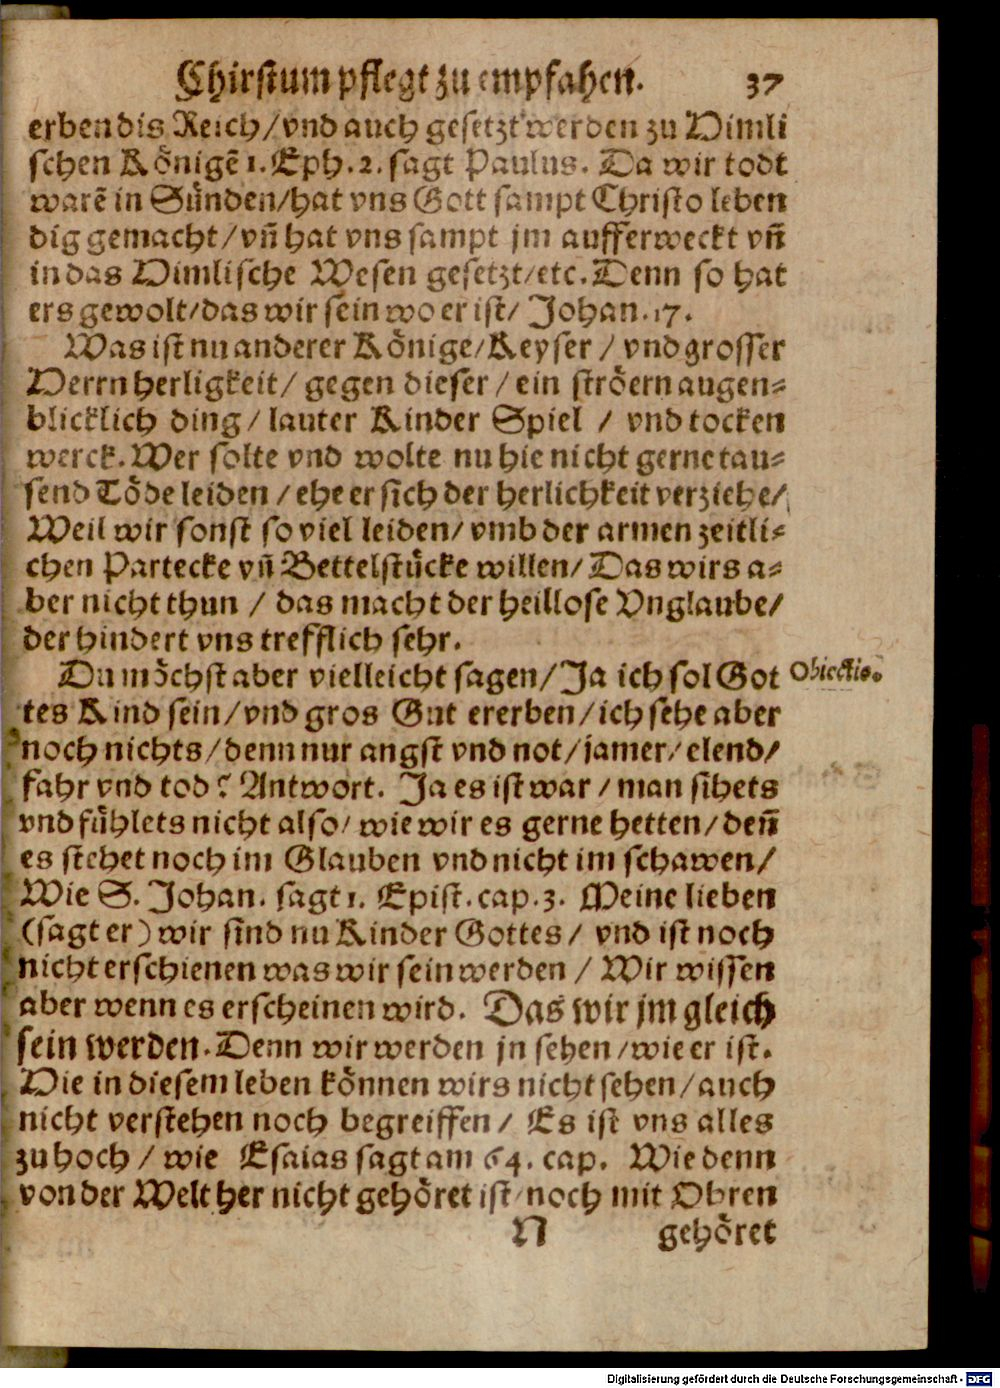 Chirstum pflegt zu empfahen. 37
erben dis Reich/ vnd auch gesetzt werden zu Himli
schen Königẽ 1. Eph. 2. sagt Paulus. Da wir todt
warẽ in Sünden/ hat vns Gott sampt Christo leben
dig gemacht/ vñ hat vns sampt jm aufferweckt vñ
in das Himlische Wesen gesetzt/ etc. Denn so hat
ers gewolt/ das wir sein wo er ist/ Johan. 17.
Was ist nu anderer Könige/ Keyser / vnd grosser
Herrn herligkeit/ gegen dieser / ein ströern augen-
blicklich ding/ lauter Kinder Spiel / vnd tocken
werck. Wer solte vnd wolte nu hie nicht gerne tau-
send Töde leiden / ehe er sich der herlichkeit verziehe/
Weil wir sonst so viel leiden/ vmb der armen zeitli-
chen Partecke vñ Bettelstücke willen/ Das wirs a-
ber nicht thun / das macht der heillose Vnglaube/
der hindert vns trefflich sehr.
Du möchst aber vielleicht sagen/ Ja ich sol Got
Obiectio.
tes Kind sein/ vnd gros Gut ererben/ ich sehe aber
noch nichts/ denn nur angst vnd not/ jamer/ elend/
fahr vnd tod? Antwort. Ja es ist war / man sihets
vnd fühlets nicht also/ wie wir es gerne hetten/ deñ
es stehet noch im Glauben vnd nicht im schawen/
Wie S. Johan. sagt 1. Epist. cap. 3. Meine lieben
(sagt er) wir sind nu Kinder Gottes/ vnd ist noch
nicht erschienen was wir sein werden / Wir wissen
aber wenn es erscheinen wird. Das wir jm gleich
sein werden. Denn wir werden jn sehen/ wie er ist.
Hie in diesem leben können wirs nicht sehen/ auch
nicht verstehen noch begreiffen/ Es ist vns alles
zu hoch / wie Esaias sagt am 64. cap. Wie denn
von der Welt her nicht gehöret ist/ noch mit Ohren
N gehöret
Digitalisierung gefördert durch die Deutsche Forschungsgemeinschaft - DFG